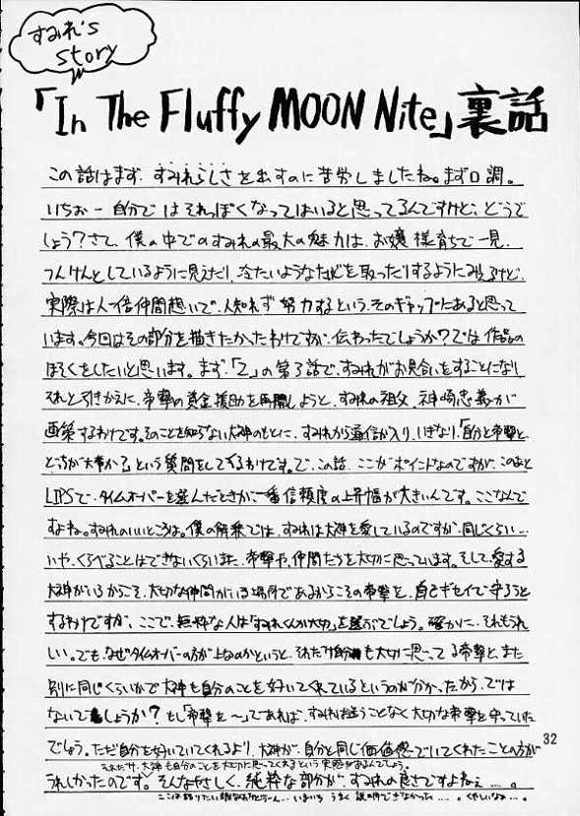 すみれ's
Story
「In The Fluffy MOON Nite」裏話
この話はまず、すみれらしさを出すのに苦労しましたね。まず口調。
いちおー自分ではそれっぽくなってはいると思ってるんですけど、どうで
しょう?さて、僕の中でのすみれの最大の魅力は、お嬢様育ちで一見、
つんけんとしているように見えたり、冷たいような態度を取ったりするようにみえるけど、
実際は人一倍仲間想いで、人知れず努力するという、そのギャップにあると思って
います。今回はその部分を描きたかったわけですが、伝わったでしょうか?では作品の
ほそくをしたいと思います。まず「2」の第3話で、すみれがお見合いをすることになり
それと引きかえに、帝撃の資金援助を再開しようと、すみれの祖父、神崎忠義が
画策するわけです。そのことを知らない大神のもとに、すみれから通信が入り、いきなり「自分と帝撃と
どっちが大事か?」という質問をしてくるわけです。で、この話、ここがポイントなのですが、このあと
LIPSで、タイムオーバーを選んだときが一番信頼度の上昇幅が大きいんです。ここなんで
すよね。すみれのいいところは。僕の解釈では、すみれは大神を愛しているのですが、同じくらい…
いや、くらべることはできないくらいに、帝撃や、仲間たちを大切に思っています。そして、愛する
大神がいるからこそ、大切な仲間がいる場所であるからこその帝撃を、自己ギセイで守ろうと
するわけですが、ここで、無粋な人は「すみれくんが大切」を選ぶでしょう。確かに、それもうれ
しい。でもなぜタイムオーバーの方が上なのかというと、それだけ自分も大切に思ってる帝撃と、また
別に同じくらいかで大神も自分のことを好いてくれているというのが分かったから、では
ないでしょうか?もし「帝撃を〜」であれば、すみれは迷うことなく大切な帝撃を守っていた
でしょう。ただ自分を好いていてくれるより、大神が、自分と同じ価値感でいてくれたことの方が
それだけ、大神も自分のことを大切に思ってくれるという実感があるんでしょう。
うれしかったのです。そんなやさしく、純粋な部分が、すみれの良さですよねぇ…。
32